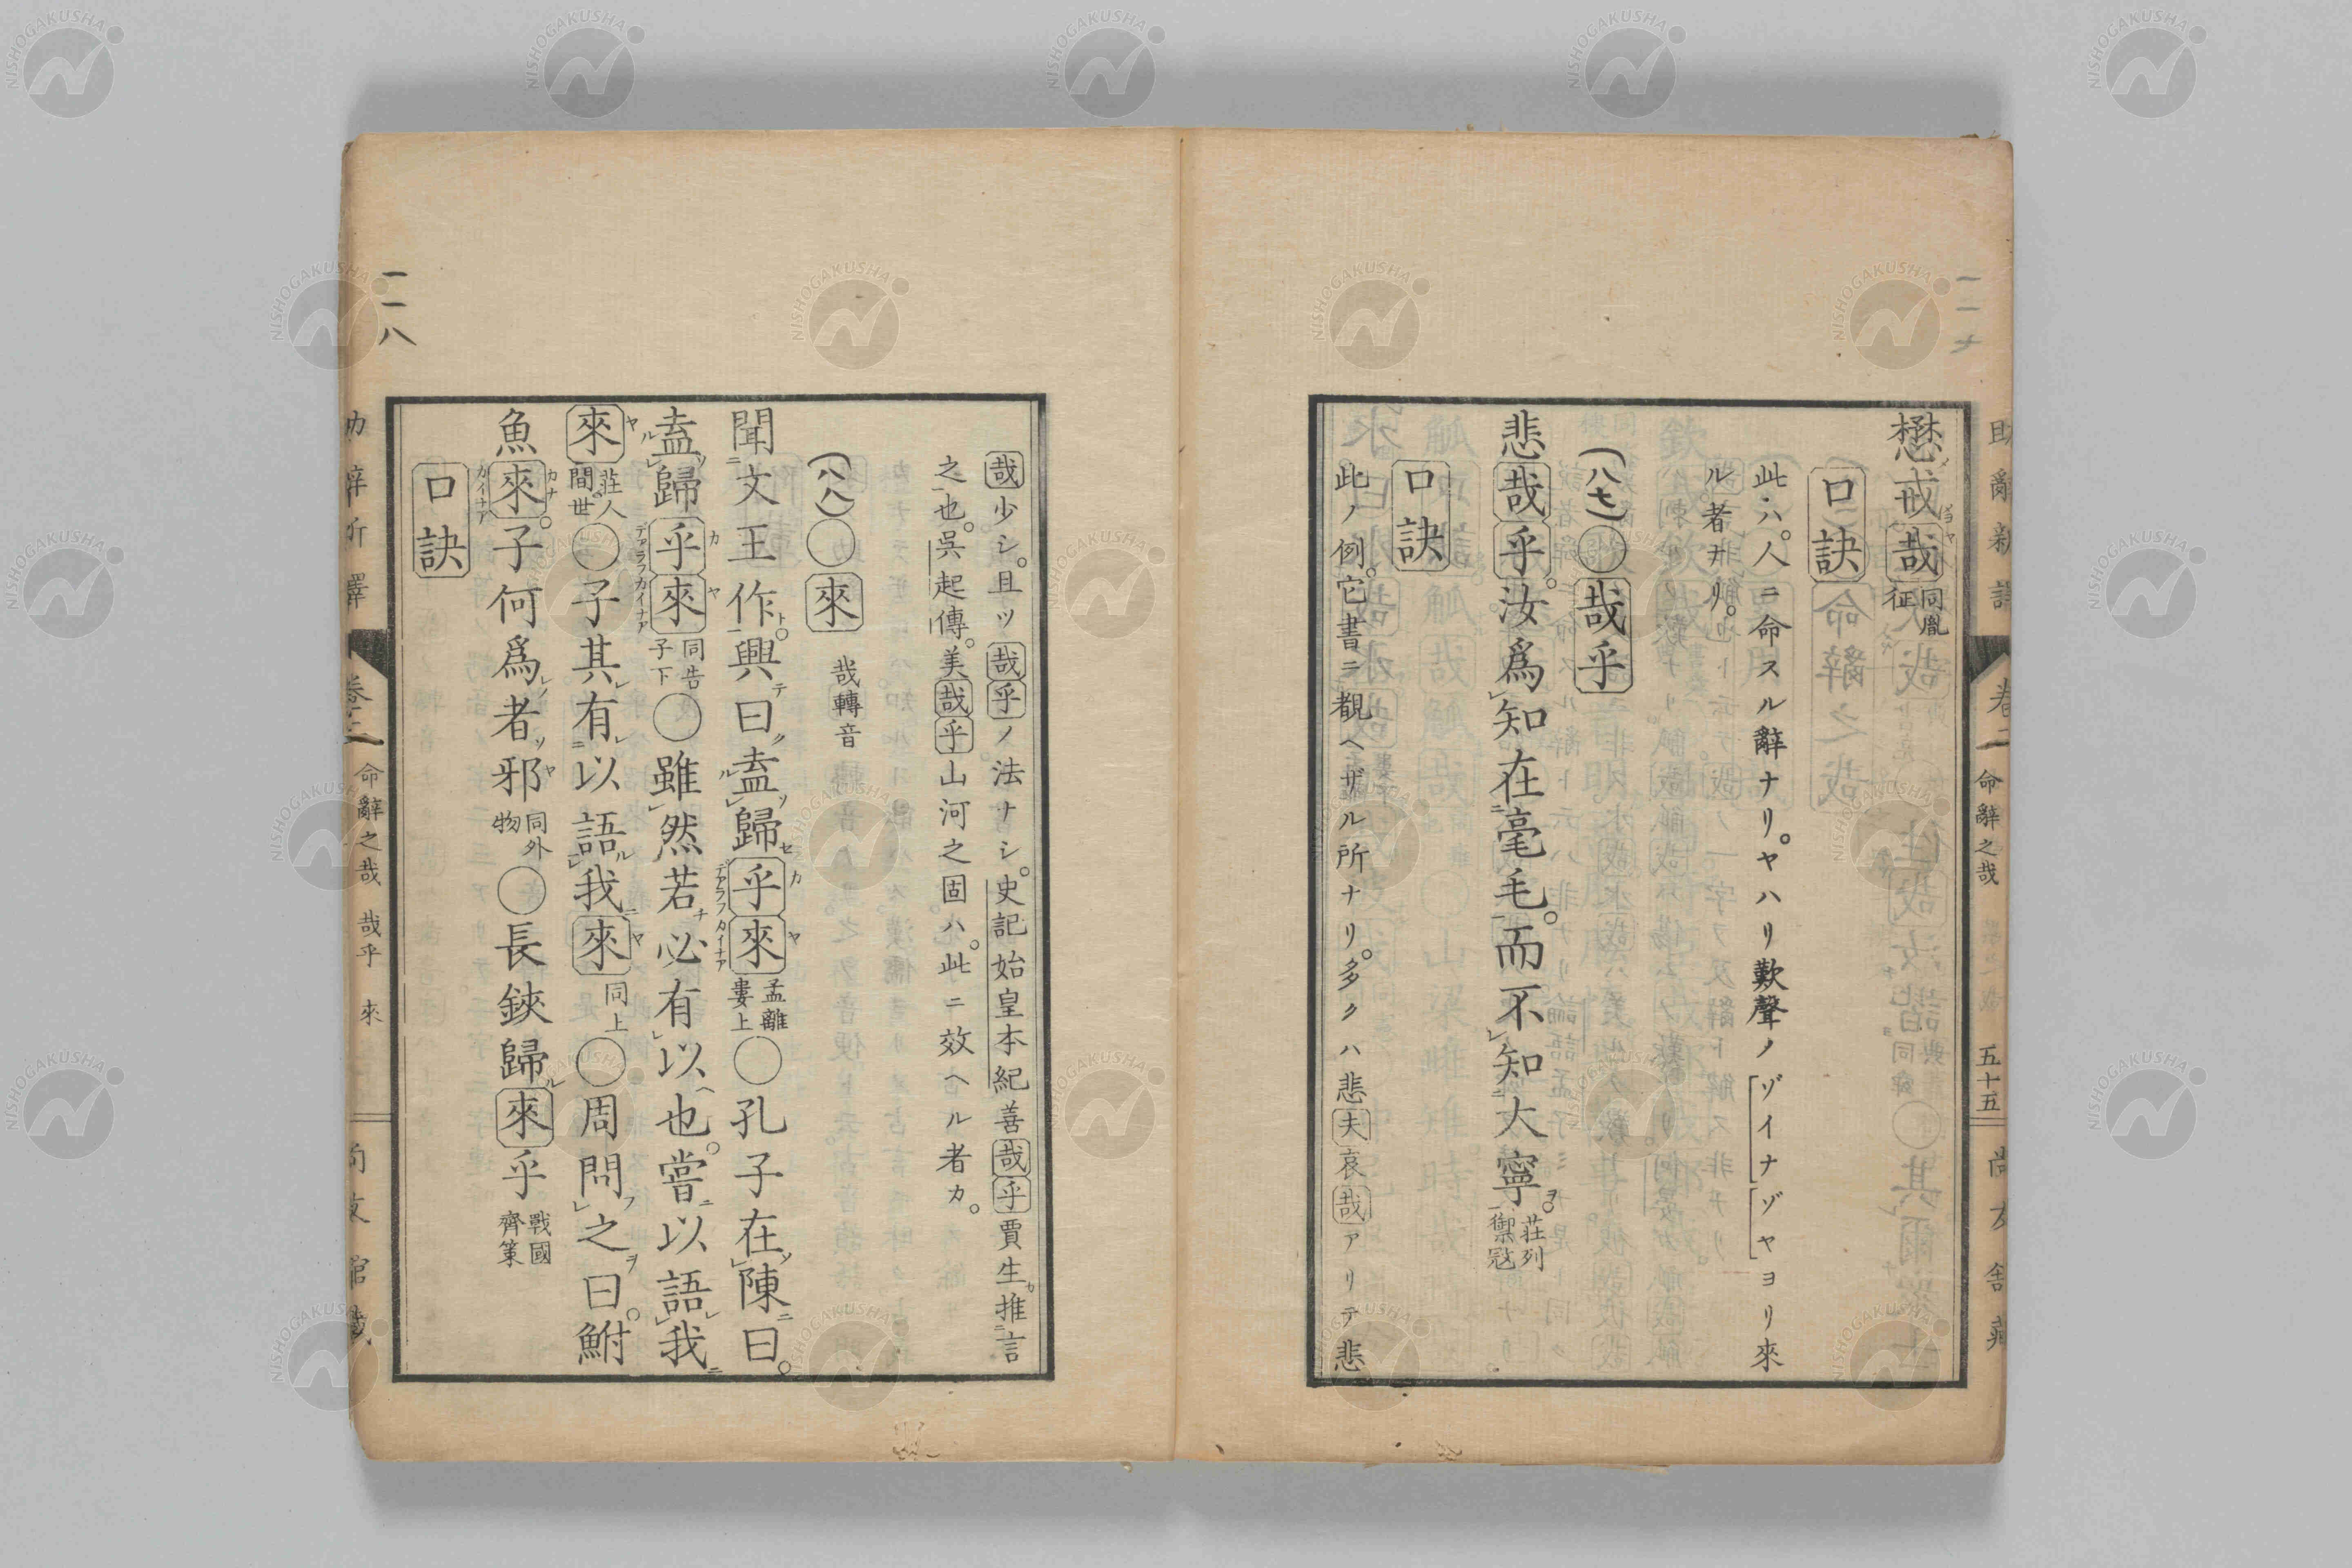 一一七
懋戒哉同胤征
口訣
此ハ。人ニ命スル辭ナリ。ヤハリ歎聲ノゾイナゾヤヨリ來
ル者ナリ。
(八七)〇哉乎
悲哉乎。汝爲知在毫毛。而不知大寧。莊列禦寇
口訣
此ノ例。它書ニ覩ヘザル所ナリ。多クハ悲夫哀哉アリテ悲
卷二 命辭之哉 五十五
哉少シ。且ツ哉乎ノ法ナシ。史記始皇本紀善哉乎賈生推言
之也。吳起傳。美哉乎山河之固ハ。此ニ效ヘル者カ。
(八八)〇來 哉轉音
聞文王作。興曰盍歸乎來孟離婁上〇孔子在陳曰。
盍歸乎來同告子下〇雖然若必有以也。嘗以語我
來莊人間世〇子其有以語我來同上〇周問之曰。鮒
魚來。子何爲者邪同外物〇長鋏歸來乎戰國齊策
口訣
一一八
命辭之哉 哉乎 來